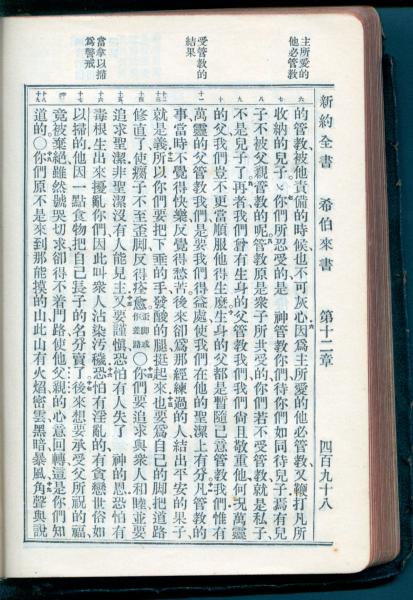 新約全書　希伯來書　第十二章　四百九十八
主所愛的
他必管教
受管教的
結果
當拿以掃
爲警戒
的管教被他責備的時候也不可灰心因爲主所愛的他必管教又鞭打凡所
收納的兒子你們所忍受的是　神管教你們待你們如同待兒子爲有兒
子不被父親管教的呢管教原是衆子所共受的你們若不受管教就是私子
不是兒子了再者我們曾有生身的父管教我們我們尚且敬重他何况萬靈
的父我們豈不更當順服他得生麼生身的父都是暫隨己意管教我們惟有
萬靈的父管教我們是要我們得益處使我們在他的聖潔上有分凡管教的
事當時不覺得快樂反覺得愁苦後來卻爲那經練過的人結出平安的果子
就是義所以你們要把下垂的手發酸的腿挺起來也要爲自己的脚把道路
修直了使瘸子不至歪脚反得痊愈歪脚或作差路〇你們要追求與衆人和睦並要
追求聖潔非聖潔沒有人能見主又要謹愼恐怕有人失了　神的恩恐怕有
毒根生出來擾亂你們因此叫衆人沾染汚穢恐怕有淫亂的有貪戀世俗如
以掃的他因一點食物把自己長子的名分賣了後來想要承受父所祝的福
竟被棄絕雖然號哭切求卻得不着門路使他父親的心意回轉這是你們知
道的〇你們原不是來到那能摸的山此山有火焰密雲黑暗暴風角聲與說